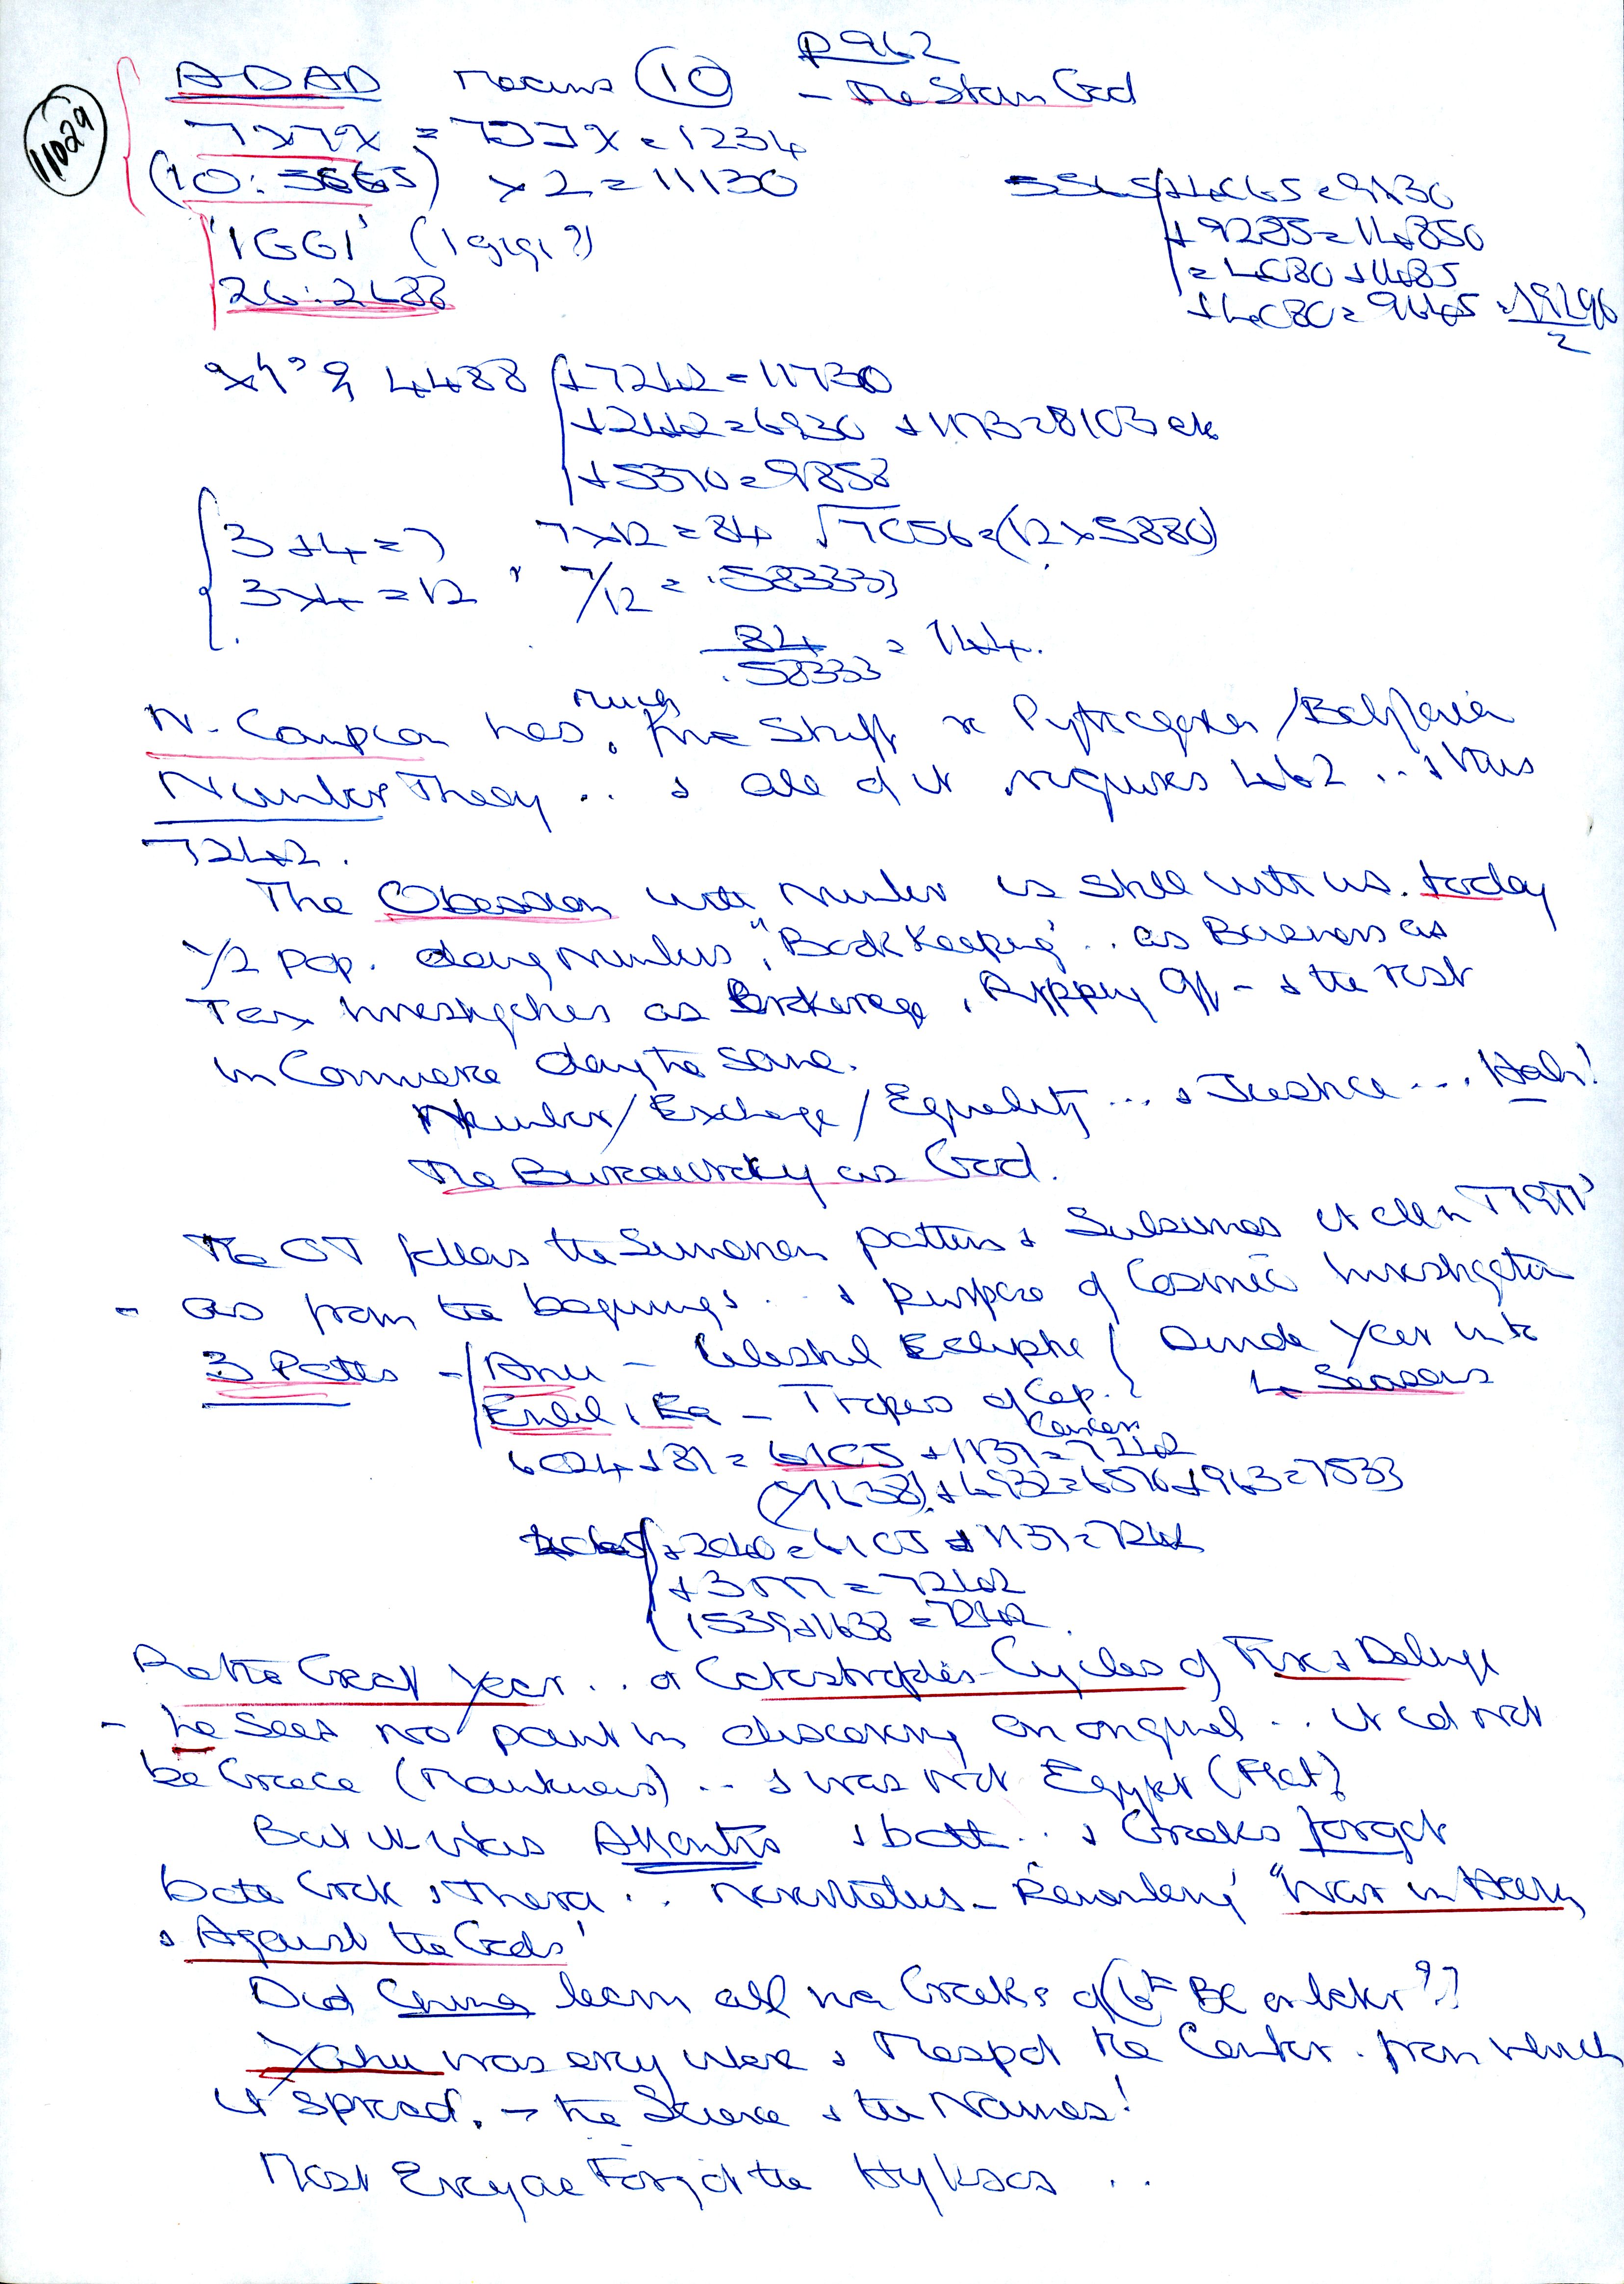 P 962
11029
ADAD means 10 - The Storm God
= 1234
(10: 5665) x 2 = 11130
'IGGI' (Igigi?)
26:2488
+ 9285 = 14850
= 4080 + 1485
4488 + 7242 = 11730
+ 2442 = 6930 + 1173 = 8103 etc
+ 5370 = 9858
3 + 4 = 7 7 x 12 = 84 √7056 = (12 x 5880)
3 x 4 = 12 , 7/12 = .583333
84 / .58333 = 144.
N. Campion has much fine stuff on Pythagorean / Babylonian
Number Theory .. & all of it requires 462 .. & thus
7242.
The Obsession with Number is still with us. today
1/2 pop. doing numbers, "Book Keeping" .. as Business as
Tax Investigators as Brokerage, Ripping Off - & the rest
in Commerce doing the same.
Number / Exchange / Equality ... & Justice ... Hah!
The Bureaucracy as God.
The OT follows the Sumerian pattern & Subsumes it all in
- as from the beginnings .. & purpose of Cosmic Investigation
3 Paths - Anu - Celestial Ecliptic Divide Year into
Enlil, Ea - Tropics of Cap. 4 Seasons
Cancer
6024 + 81 = 6105 + 1137 = 7242
(1638) + 4932 = 6570 + 963 = 7533
+ 2040 = 6105 + 1137 = 7242
+ 3177 = 7242
1539 + 1638 = 7242.
Re the Great Year .. or Catastrophes - Cycles of Fire & Deluge
- he sees no point in discovering an original .. it cd not
be Greece (Mountains) .. & was not Egypt (Flat)
But it was Atlantis & both .. & Greeks forget
both Crete & Thera .. Nevertheless - Remembering "War in Heaven
& Against the Gods'
Did China learn all via Greeks of (6th BC or later??
Yahu was every where & Mesopot the Center. from which
it spread. - the Science & the Names!
Most Everyone Forgot the Hyksos ..